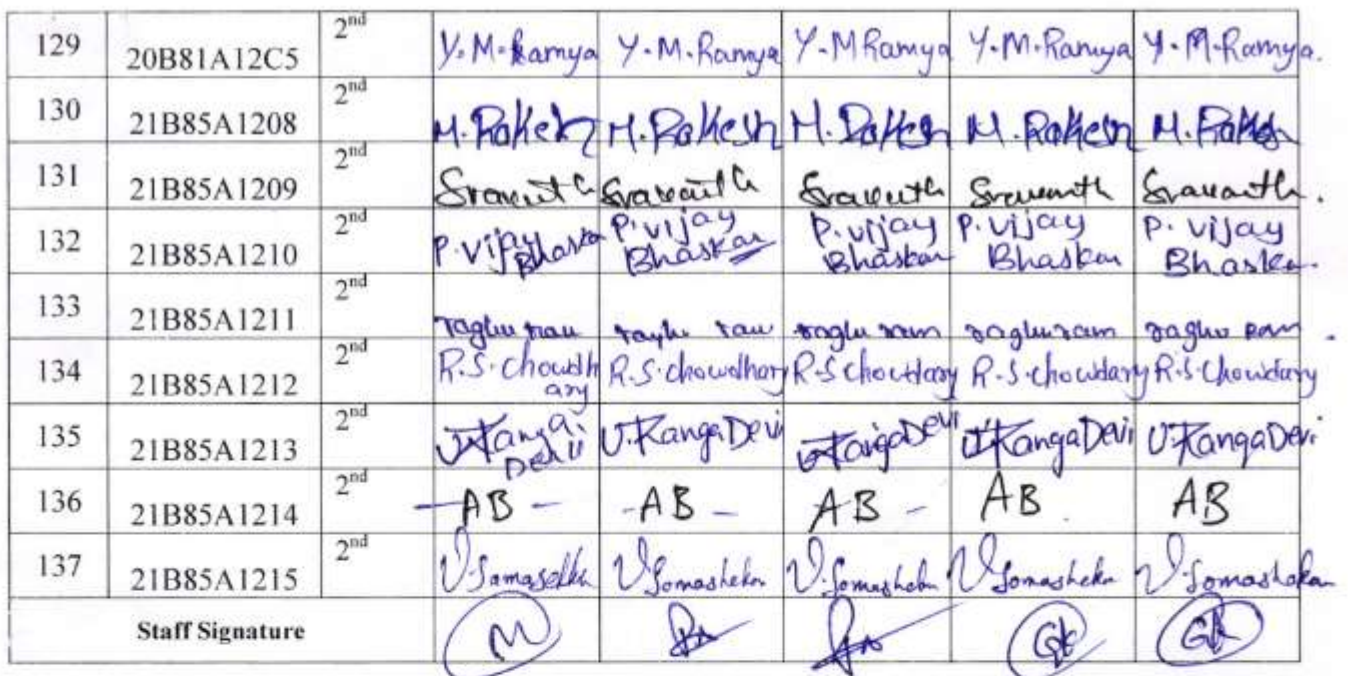 129 20B81A12C5 2nd Y.M.Ramya Y.M.Ramya Y.M Ramya Y.M.Ramya Y.M.Ramya.
130 21B85A1208 2nd M.Rakesh M.Rakesh M.Rakesh M.Rakesh M.Rakesh
131 21B85A1209 2nd Sravanth Sravanth Sravanth Sravanth Sravanth.
132 21B85A1210 2nd P.Vijay Bhaskar P.Vijay Bhaskar P.Vijay Bhaskar P.Vijay Bhaskar P.Vijay Bhaskar.
133 21B85A1211 2nd raghu ram raghu ram raghu ram raghu ram raghu ram
134 21B85A1212 2nd R.S.Choudhary R.S.Chowdhary R.S Chowdary R.S.Chowdary R.S.Chowdary
135 21B85A1213 2nd U.Ranga Devi U.Ranga Devi U.Ranga Devi U.Ranga Devi U.Ranga Devi
136 21B85A1214 2nd -AB- -AB- AB- AB AB
137 21B85A1215 2nd V.Somasekhar V.Somashekar V.Somashekar V.Somashekar V.Somashekar
Staff Signature